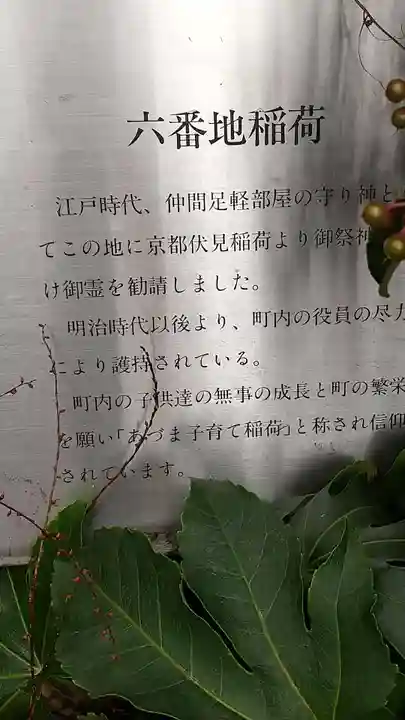 六番地稲荷
江戸時代、仲間足軽部屋の守り神と
てこの地に京都伏見稲荷より御祭神
け御霊を勧請しました。
明治時代以後より、町内の役員の尽力
により護持されている。
町内の子供達の無事の成長と町の繁栄
を願い「あづま子育て稲荷」と称され信仰
されています。